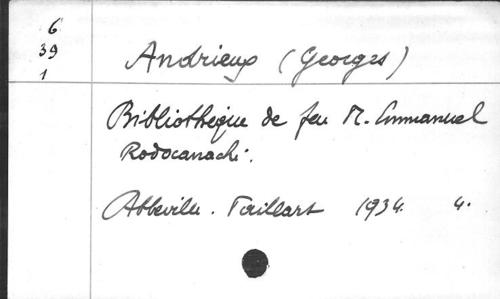 6
39
1
Andrieux (Georges)
Bibliothèque de feu M. Emmanuel
Rodocanachi.
Abbeville. Paillart 1934. 4.